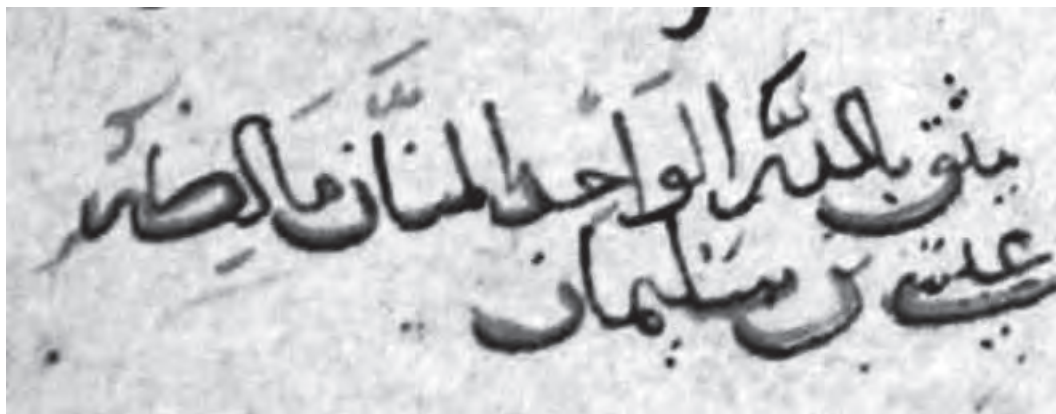 يثق بالله الواحد المنان
علي بن سليمان